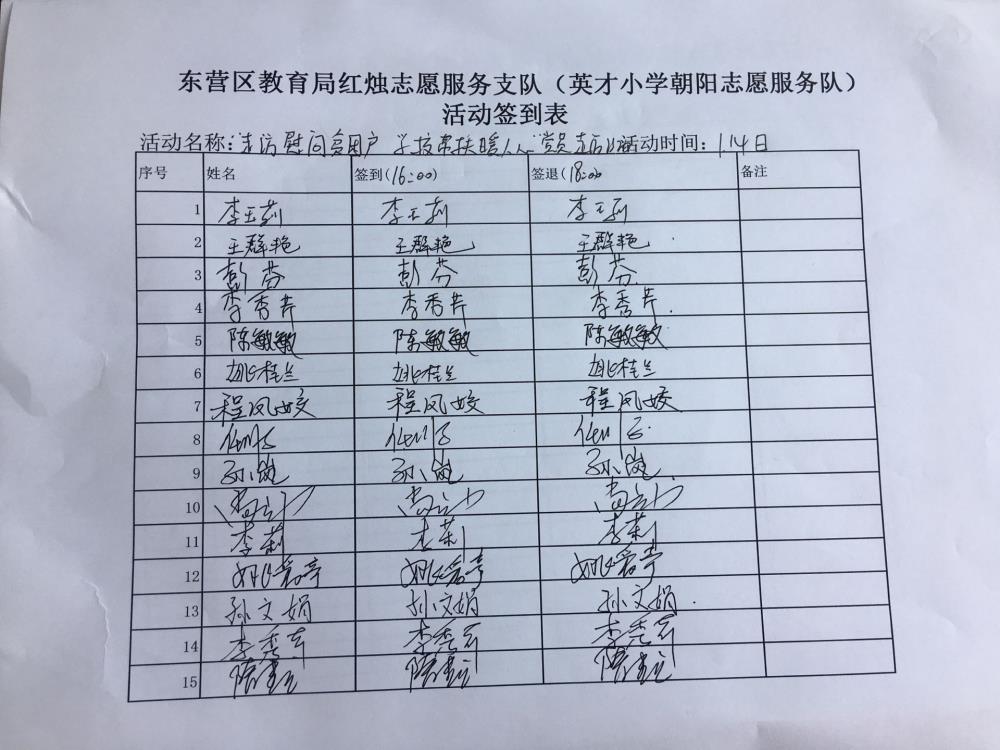 东营区教育局红烛志愿服务支队（英才小学朝阳志愿服务队）
活动签到表
活动名称：走访慰问贫困户 学校帮扶暖人心 党员走访 活动时间：1.14日
序号 姓名 签到(16:00) 签退(18:00 备注
1 李玉莉 李玉莉 李玉莉
2 王群艳 王群艳 王群艳
3 彭芬 彭芬 彭芬
4 李秀芹 李秀芹 李秀芹
5 陈敏敏 陈敏敏 陈敏敏
6 姚桂兰 姚桂兰 姚桂兰
7 程凤姣 程凤姣 程凤姣
8
9 孙岚 孙岚 孙岚
10
11 李莉 李莉 李莉
12
13 孙文娟 孙文娟 孙文娟
14 李秀云 李秀云 李秀云
15